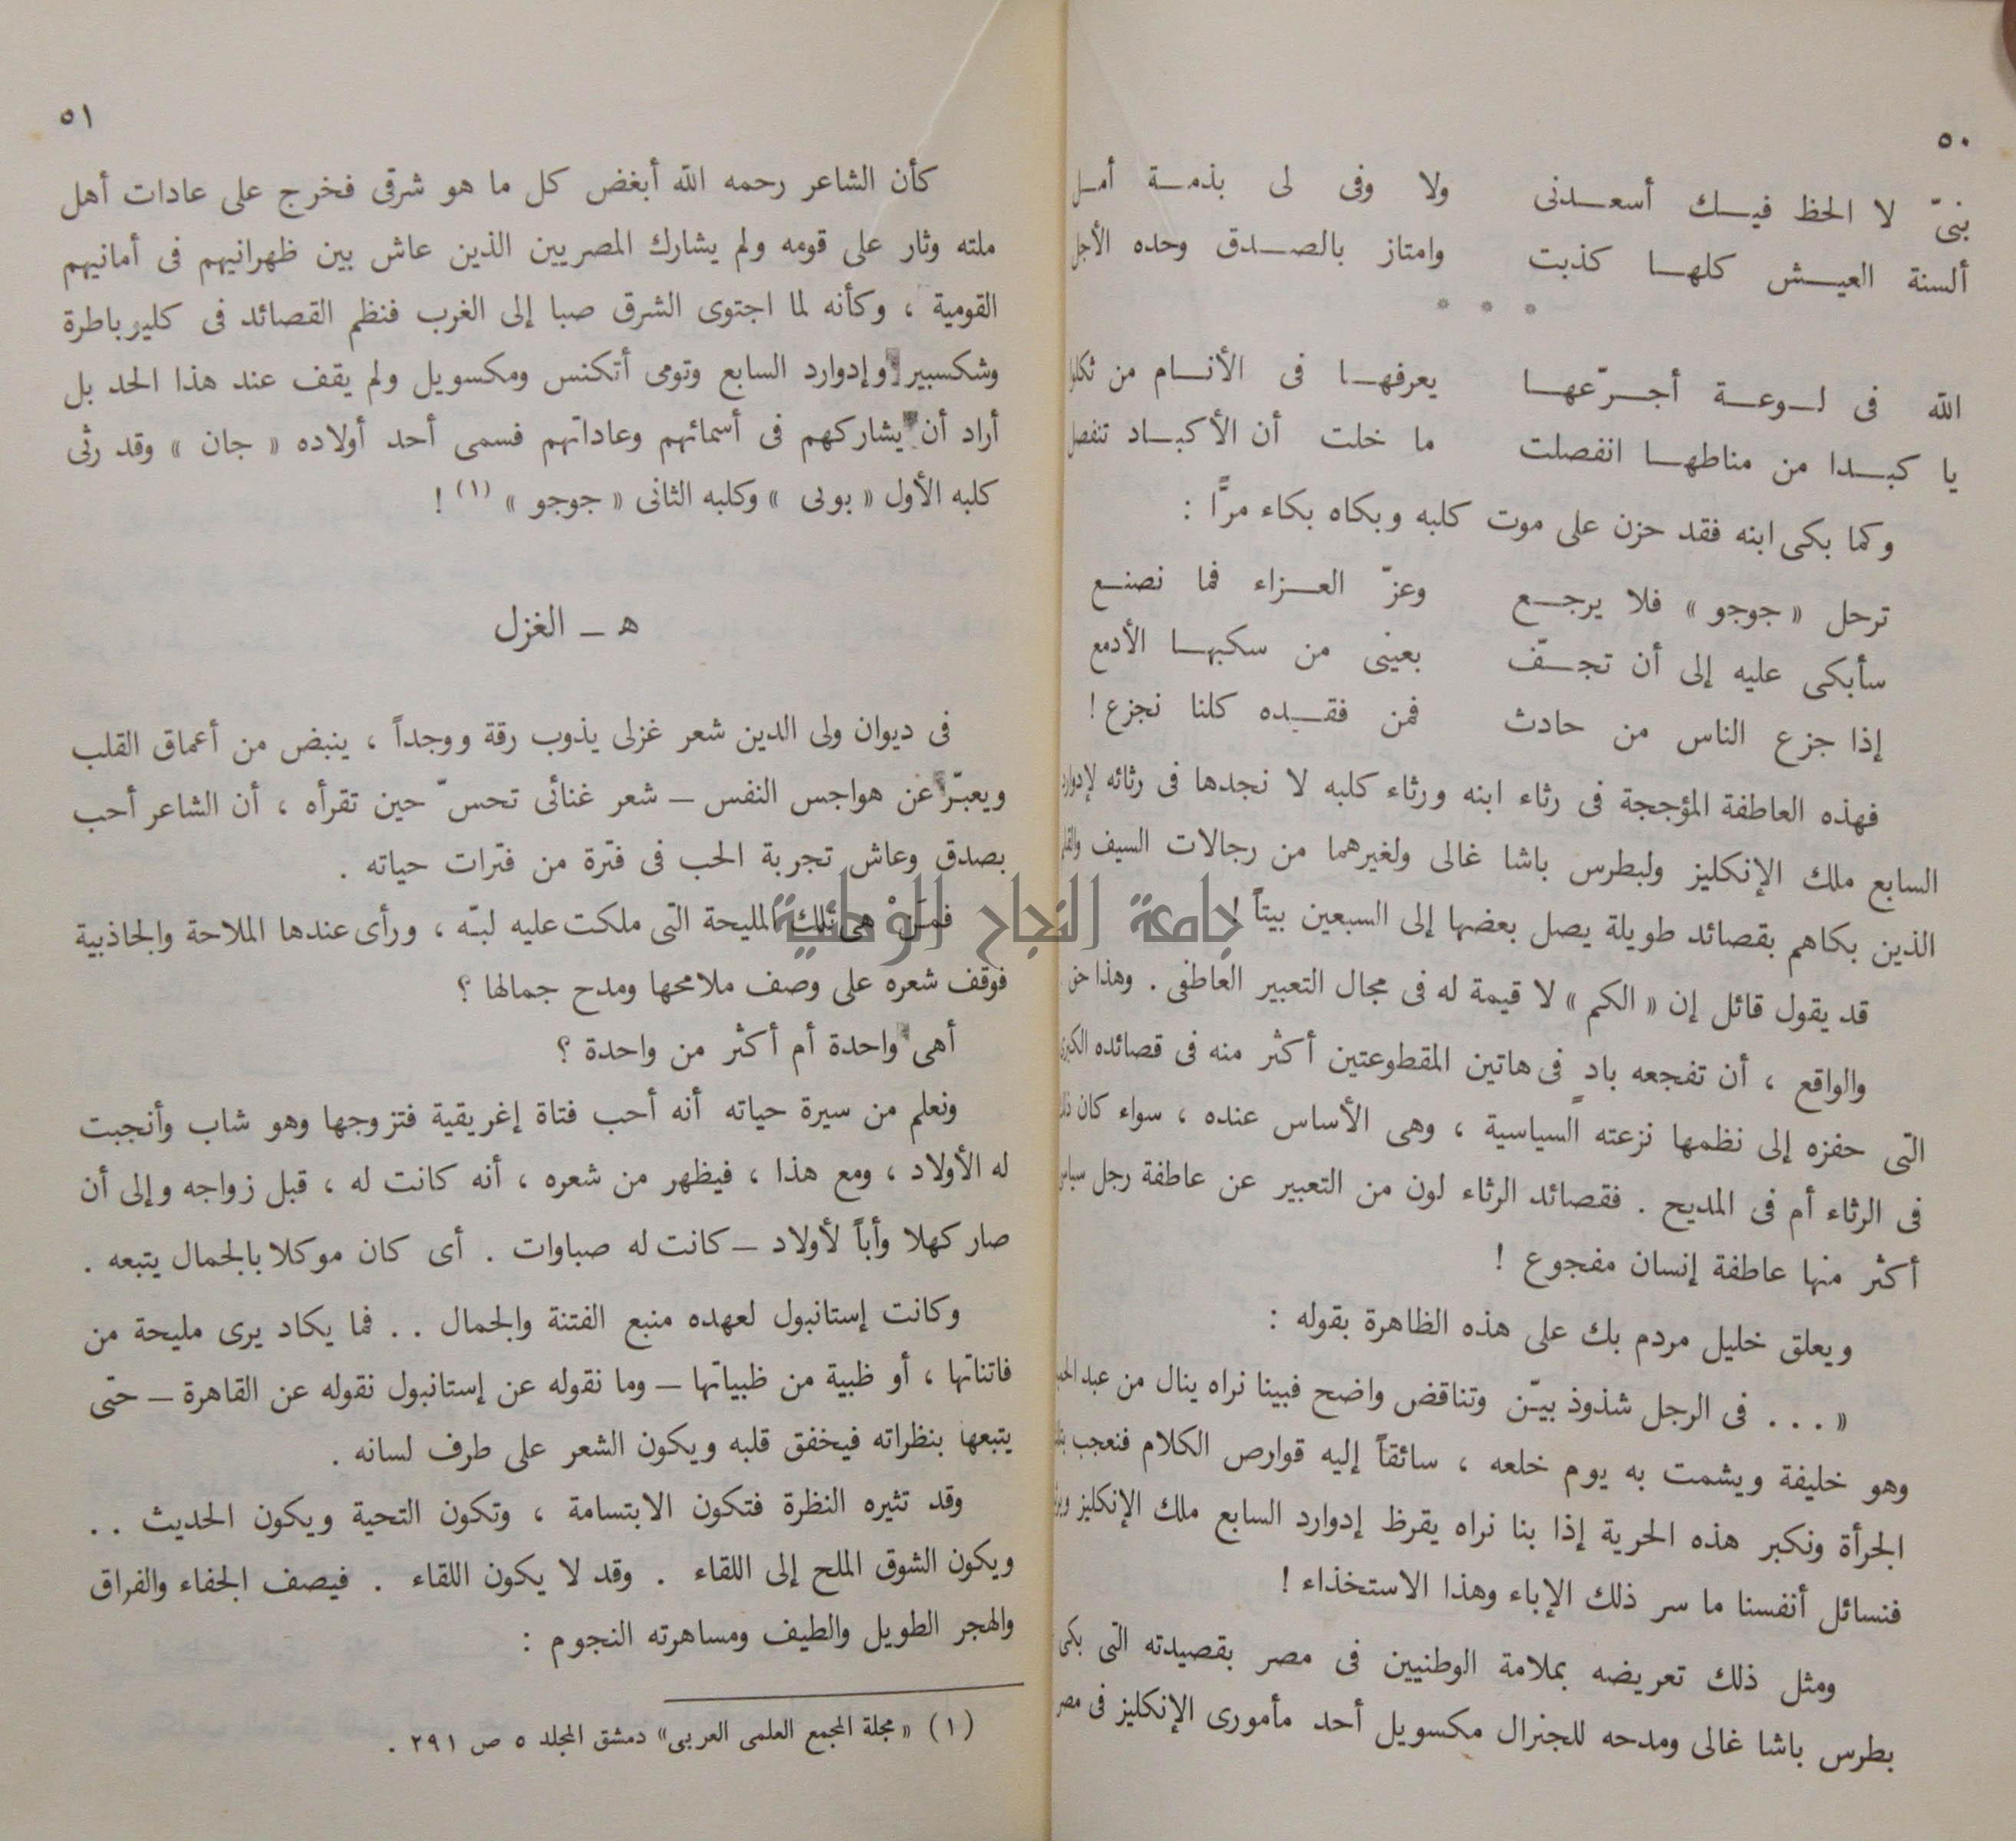 ٥٠
بنىّ لا الحظ فيك أسعدنى ولا وفى لى بذمة أمل
ألسنة العيش كلها كذبت وامتاز بالصدق وحده الأجل
* * *
الله فى لوعة أجرّعها يعرفها فى الأنام من ثكلوا
يا كبدا من مناطها انفصلت ما خلت أن الأكباد تنفصل
وكما بكى ابنه فقد حزن على موت كلبه وبكاه بكاء مرًّا :
ترحل « جوجو » فلا يرجع وعزّ العزاء فما نصنع
سأبكى عليه إلى أن تجفّ بعينى من سكبها الأدمع
إذا جزع الناس من حادث فمن فقده كلنا نجزع !
فهذه العاطفة المؤججة فى رثاء ابنه ورثاء كلبه لا نجدها فى رثائه لإدوارد
السابع ملك الإنكليز ولبطرس باشا غالى ولغيرهما من رجالات السيف والقلم
الذين بكاهم بقصائد طويلة يصل بعضها إلى السبعين بيتاً !
قد يقول قائل إن « الكم » لا قيمة له فى مجال التعبير العاطفى . وهذا حق .
والواقع ، أن تفجعه بادٍ فى هاتين المقطوعتين أكثر منه فى قصائده الكبرى
التى حفزه إلى نظمها نزعته السياسية ، وهى الأساس عنده ، سواء كان ذلك
فى الرثاء أم فى المديح . فقصائد الرثاء لون من التعبير عن عاطفة رجل سياسى
أكثر منها عاطفة إنسان مفجوع !
ويعلق خليل مردم بك على هذه الظاهرة بقوله :
« . . . فى الرجل شذوذ بيّن وتناقض واضح فبينا نراه ينال من عبد
وهو خليفة ويشمت به يوم خلعه ، سائقاً إليه قوارص الكلام فنعجب
الجرأة ونكبر هذه الحرية إذا بنا نراه يقرظ إدوارد السابع ملك الإنكليز
فنسائل أنفسنا ما سر ذلك الإباء وهذا الاستخذاء !
ومثل ذلك تعريضه بملامة الوطنيين فى مصر بقصيدته التى بكى
بطرس باشا غالى ومدحه للجنرال مكسويل أحد مأمورى الإنكليز فى مصر
٥١
كأن الشاعر رحمه الله أبغض كل ما هو شرقى فخرج على عادات أهل
ملته وثار على قومه ولم يشارك المصريين الذين عاش بين ظهرانيهم فى أمانيهم
القومية ، وكأنه لما اجتوى الشرق صبا إلى الغرب فنظم القصائد فى كليوباطرة
وشكسبير وإدوارد السابع وتومى أتكنس ومكسويل ولم يقف عند هذا الحد بل
أراد أن يشاركهم فى أسمائهم وعاداتهم فسمى أحد أولاده « جان » وقد رثى
كلبه الأول « بوبى » وكلبه الثانى « جوجو » (١) !
ه – الغزل
فى ديوان ولى الدين شعر غزلى يذوب رقة ووجداً ، ينبض من أعماق القلب
ويعبّر عن هواجس النفس – شعر غنائى تحسّ حين تقرأه ، أن الشاعر أحب
بصدق وعاش تجربة الحب فى فترة من فترات حياته .
فمَنْ هى تلك المليحة التى ملكت عليه لبّه ، ورأى عندها الملاحة والجاذبية
فوقف شعره على وصف ملامحها ومدح جمالها ؟
أهى واحدة أم أكثر من واحدة ؟
ونعلم من سيرة حياته أنه أحب فتاة إغريقية فتزوجها وهو شاب وأنجبت
له الأولاد ، ومع هذا ، فيظهر من شعره ، أنه كانت له ، قبل زواجه وإلى أن
صار كهلا وأباً لأولاد – كانت له صباوات . أى كان موكلا بالجمال يتبعه .
وكانت إستانبول لعهده منبع الفتنة والجمال . . فما يكاد يرى مليحة من
فاتناتها ، أو ظبية من ظبياتها – وما نقوله عن إستانبول نقوله عن القاهرة – حتى
يتبعها بنظراته فيخفق قلبه ويكون الشعر على طرف لسانه .
وقد تثيره النظرة فتكون الابتسامة ، وتكون التحية ويكون الحديث . .
ويكون الشوق الملح إلى اللقاء . وقد لا يكون اللقاء . فيصف الجفاء والفراق
والهجر الطويل والطيف ومساهرته النجوم :
(١) « مجلة المجمع العلمى العربى » دمشق المجلد ٥ ص ٢٩١ .
جامعة النجاح الوطنية